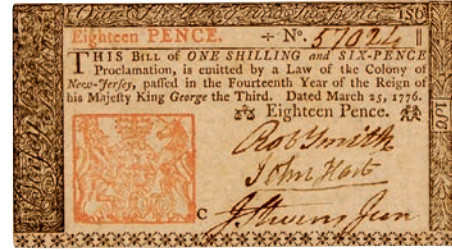 One Shilling and Sixpence ISC
Eighteen PENCE. ÷ No. 57024
THIS BILL of ONE SHILLING and SIX-PENCE
Proclamation, is emitted by a Law of the Colony of
New-Jersey, paſſed in the Fourteenth Year of the Reign of
his Majeſty King George the Third. Dated March 25, 1776.
Eighteen Pence.
Rob Smith
John Hart
C J. Stevens Jun